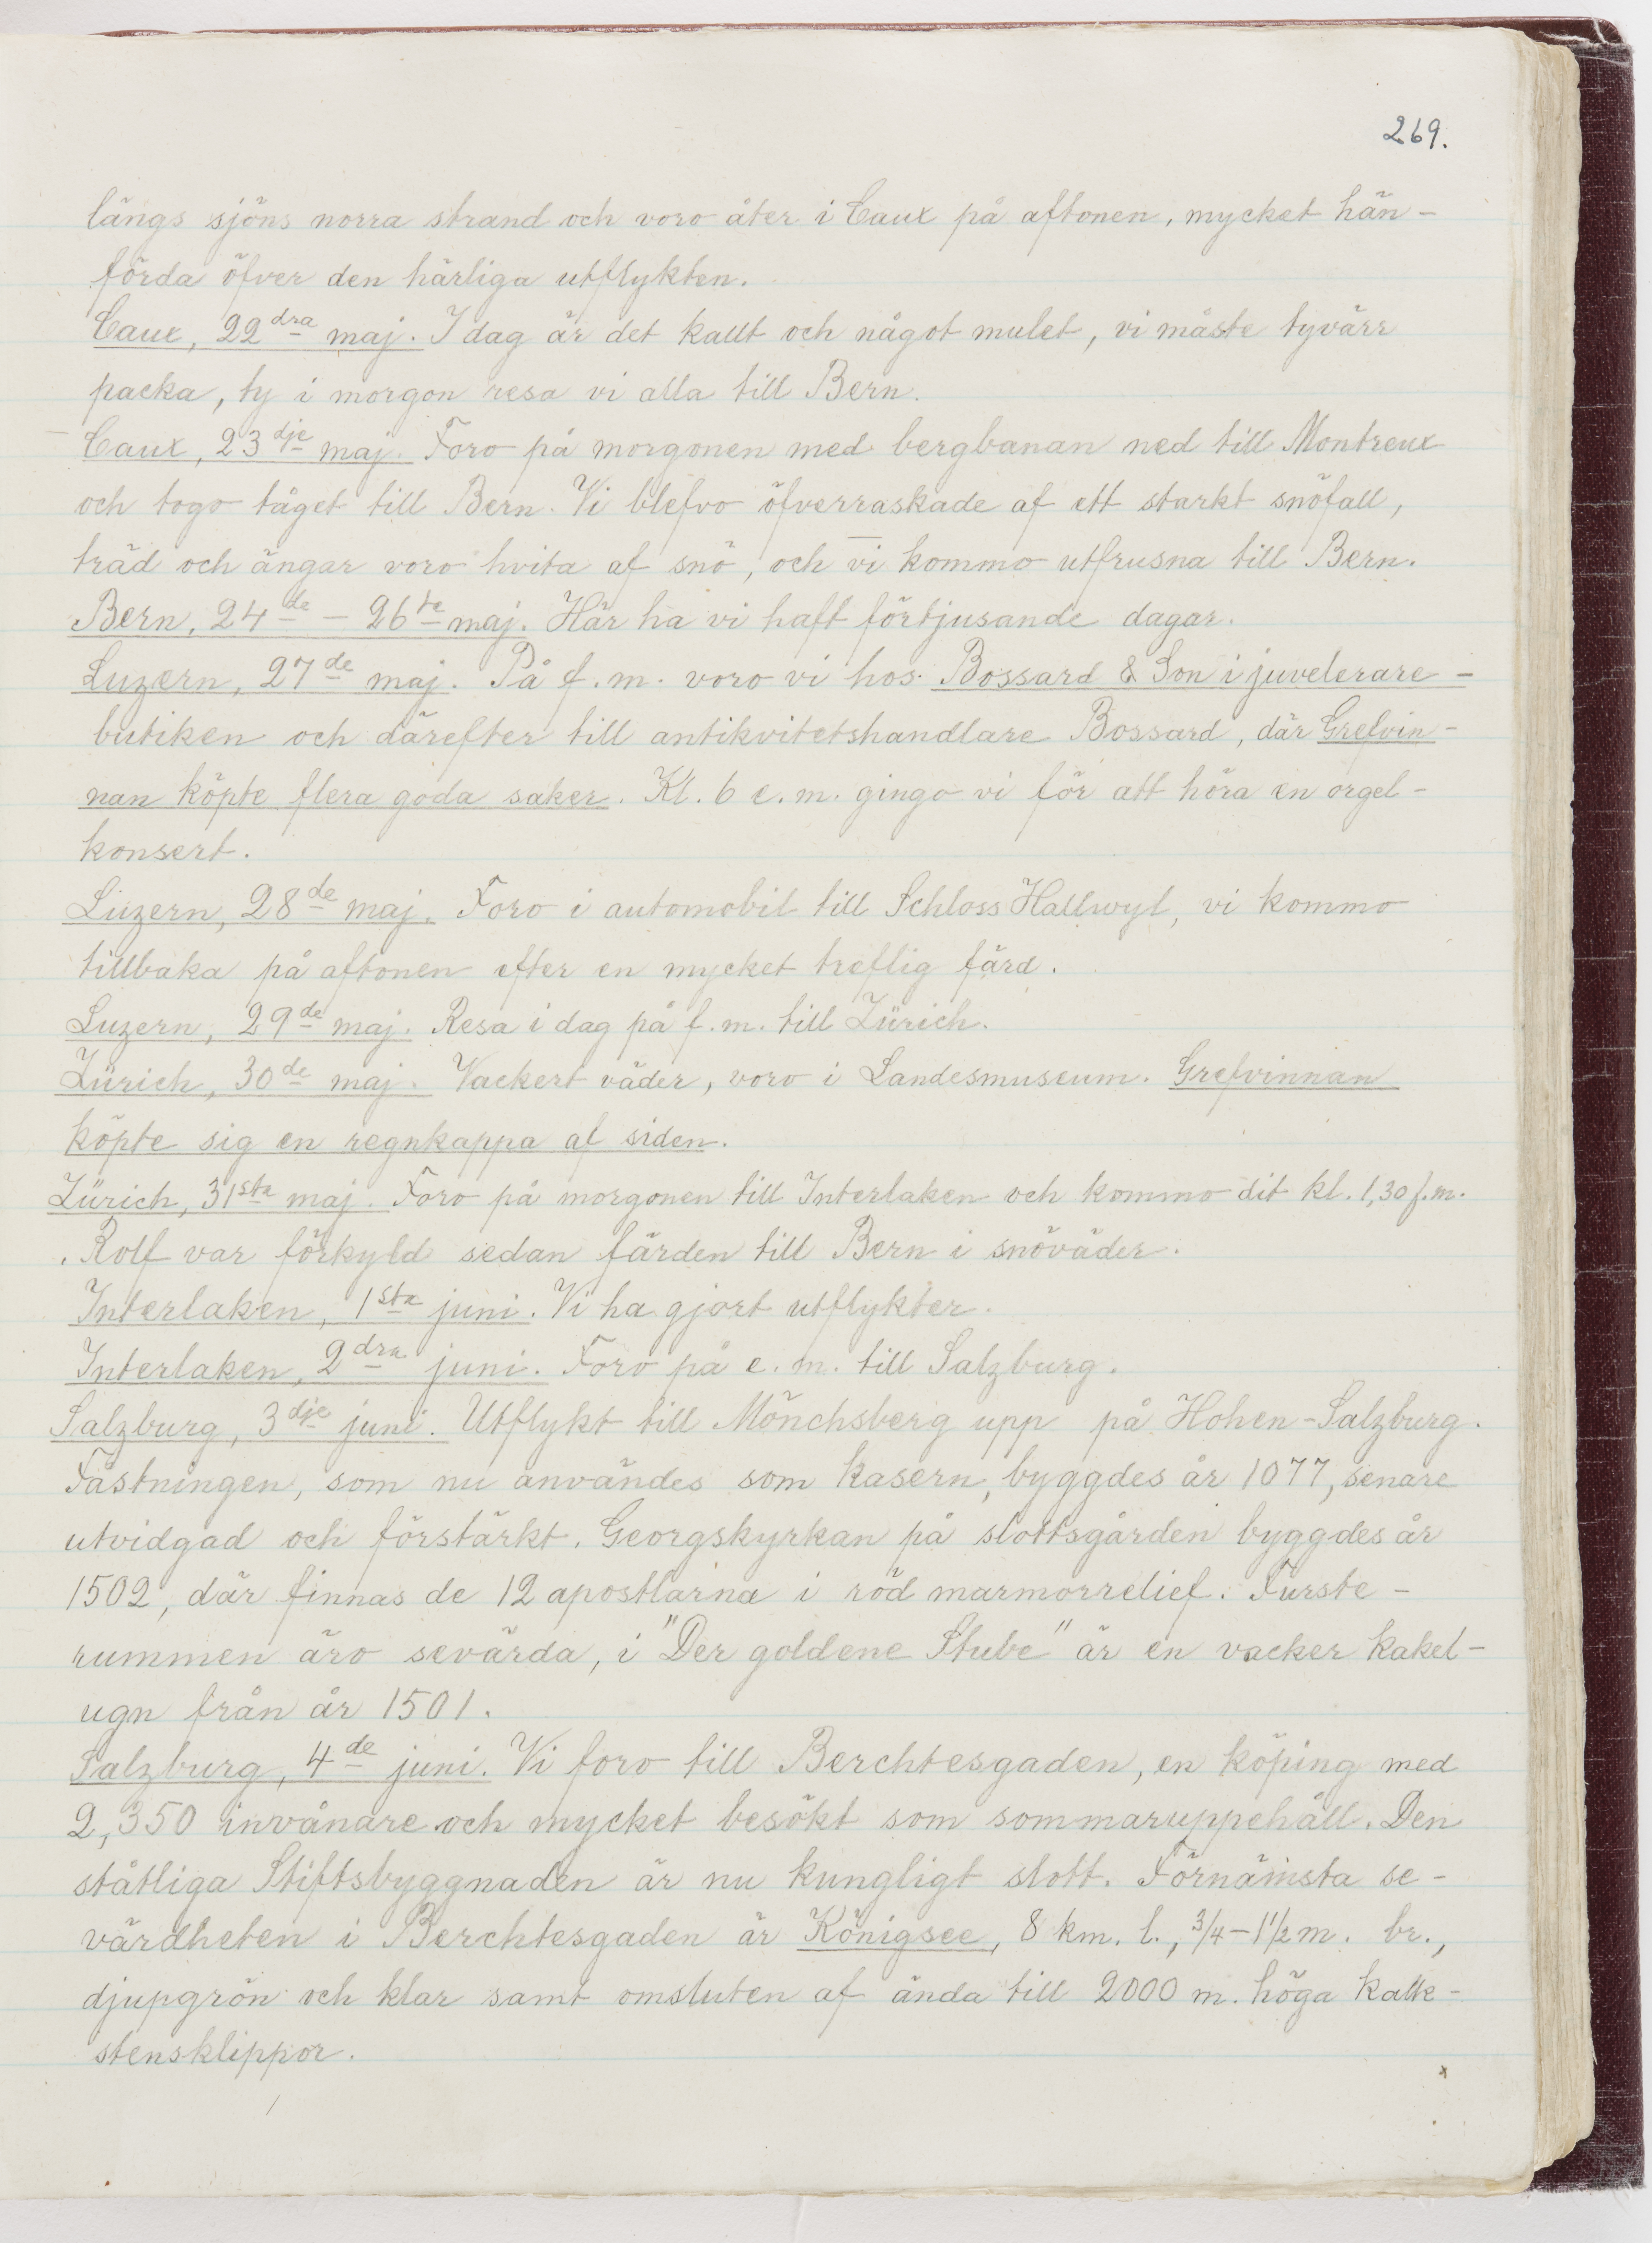 269.
längs sjöns norra strand och voro åter i Caux på aftonen, mycket hän-
förda öfver den härliga utflykten.
Caux, 22dra maj. I dag är det kallt och något mulet, vi måste tyvärr
packa, ty i morgon resa vi alla till Bern.
Caux, 23dje maj. Foro på morgonen med bergbanan ned till Montreux
och togo tåget till Bern. Vi blefvo öfverraskade af ett starkt snöfall,
träd och ängar voro hvita af snö, och vi kommo utfrusna till Bern.
Bern, 24de - 26te maj. Här ha vi haft förtjusande dagar.
Luzern, 27de maj. På f.m. voro vi hos Bossard & Son i juvelerare-
butiken och därefter till antikvitetshandlare Bossard, där Grefvin-
nan köpte flera goda saker. Kl. 6 e.m. gingo vi för att höra en orgel-
konsert.
Luzern, 28de maj. Foro i automobil till Schloss Hallwyl, vi kommo
tillbaka på aftonen efter en mycket treflig färd.
Luzern, 29de maj. Resa i dag på f.m. till Zürich.
Zürich, 30de maj. Vackert väder, voro i Landesmuseum. Grefvinnan
köpte sig en regnkappa af siden.
Zürich, 31sta maj. Foro på morgonen till Interlaken och kommo dit kl. 1,30 f.m.
Rolf var förkyld sedan färden till Bern i snöväder.
Interlaken, 1sta juni. Vi ha gjort utflykter.
Interlaken, 2dra juni. Foro på e.m. till Salzburg.
Salzburg, 3dje juni. Utflykt till Mönchsberg upp på Hohen-Salzburg.
Fästningen, som nu användes som kasern, byggdes år 1077, senare
utvidgad och förstärkt. Georgskyrkan på slottsgården byggdes år
1502, där finnas de 12 apostlarna i röd marmorrelief. Furste-
rummen äro sevärda, i "Der goldene Stube" är en vacker kakel-
ugn från år 1501.
Salzburg, 4de juni. Vi foro till Berchtesgaden, en köping med
2,350 invånare och mycket besökt som sommaruppehåll. Den
ståtliga Stiftsbyggnaden är nu kungligt slott. Förnämsta se-
värdheten i Berchtesgaden är Königsee, 8 km. l., 3/4-1 1/2 m. br.,
djupgrön och klar samt omsluten af ända till 2000 m. höga kalk-
stensklippor.